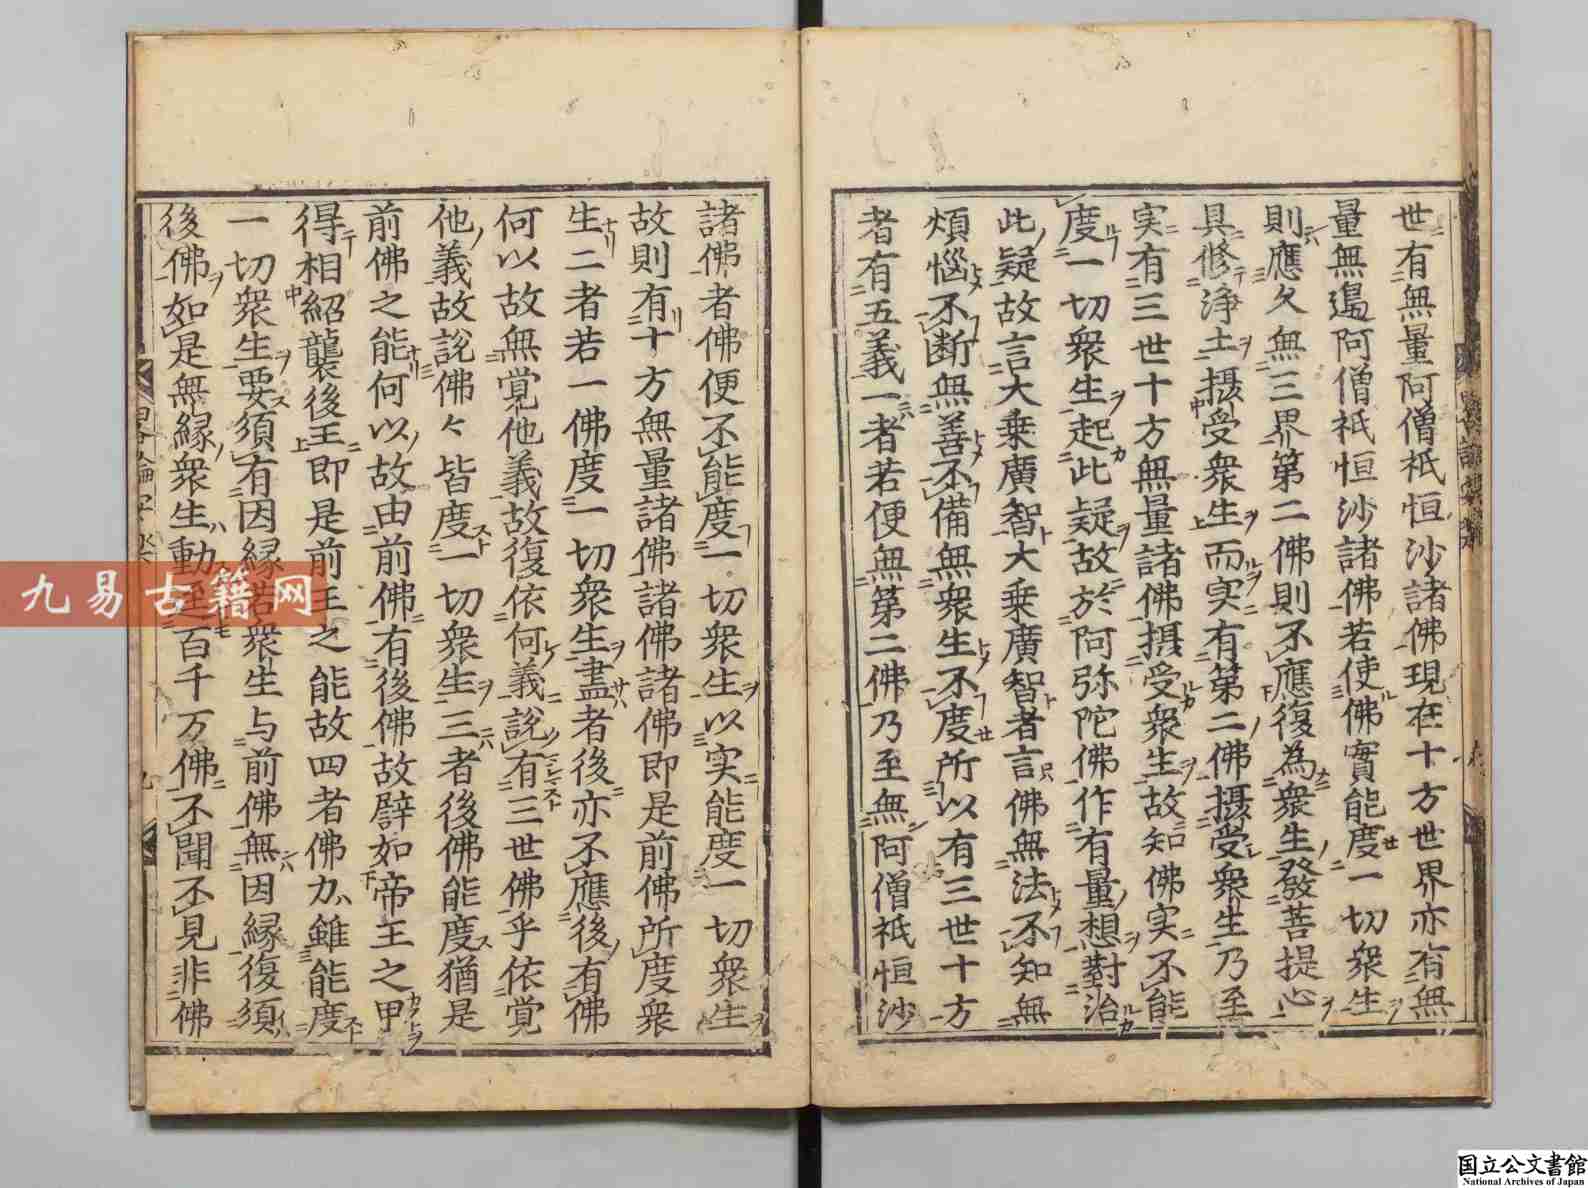 世有無量阿僧祇恒沙諸佛現在十方世界亦有無
量無邊阿僧祇恒沙諸佛若使佛實能度一切衆生
則應久無三界第二佛則不應復為衆生發菩提心
具修淨土摄受衆生而实有第二佛摄受衆生乃至
实有三世十方無量諸佛摄受衆生故知佛实不能
度一切衆生起此疑故於阿弥陀佛作有量想對治
此疑故言大乗廣智大乗廣智者言佛無法不知無
煩惱不断無善不備無衆生不度所以有三世十方
者有五義一者若便無第二佛乃至無阿僧祇恒沙
諸佛者佛便不能度一切衆生以实能度一切衆生
故則有十方無量諸佛諸佛即是前佛所度衆
生二者若一佛度一切衆生盡者後亦不應後有佛
何以故無覚他義故復依何義説有三世佛乎依覚
他義故説佛々皆度一切衆生三者後佛能度猶是
前佛之能何以故由前佛有後佛故譬如帝王之甲
得相紹襲後王即是前王之能故四者佛力雖能度
一切衆生要須有因縁若衆生与前佛無因縁復須
後佛如是無縁衆生動至百千万佛不聞不見非佛
九易古籍网
国立公文書館
National Archives of Japan